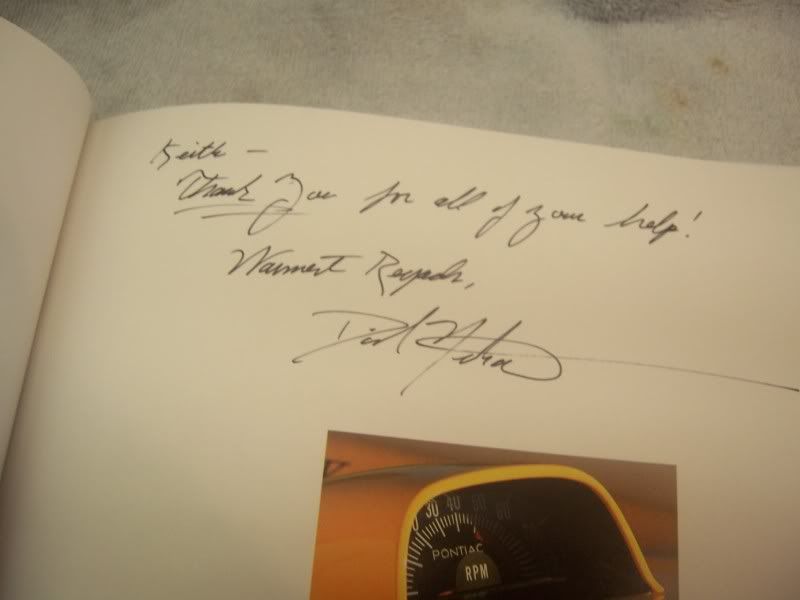 Keith —
Thank You for all of your help!
Warmest Regards,
30 40 50 60
PONTIAC
RPM